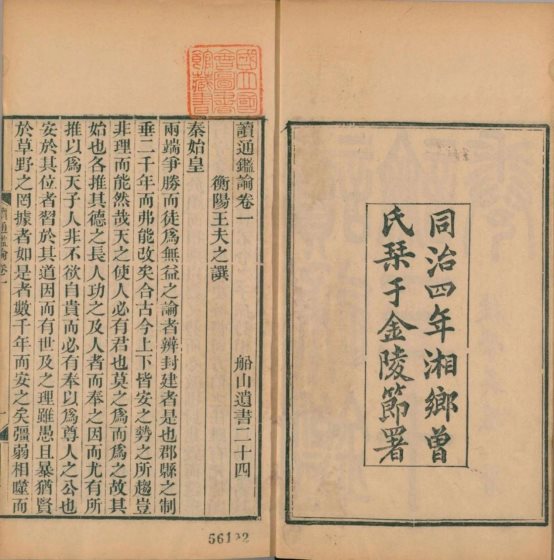 同治四年湘鄉曾
氏栞于金陵節署
讀通鑑論卷一
船山遺書二十四
衡陽王夫之譔
秦始皇
兩端爭勝而徒爲無益之論者辨封建者是也郡縣之制
垂二千年而弗能改矣合古今上下皆安之勢之所趨豈
非理而能然哉天之使人必有君也莫之爲而爲之故其
始也各推其德之長人功之及人者而奉之因而尤有所
推以爲天子人非不欲自貴而必有奉以爲尊人之公也
安於其位者習於其道因而有世及之理雖愚且暴猶賢
於草野之罔據者如是者數千年而安之矣彊弱相噬而
讀通鑑論卷一
一
國立國
會圖書
館藏書
56122